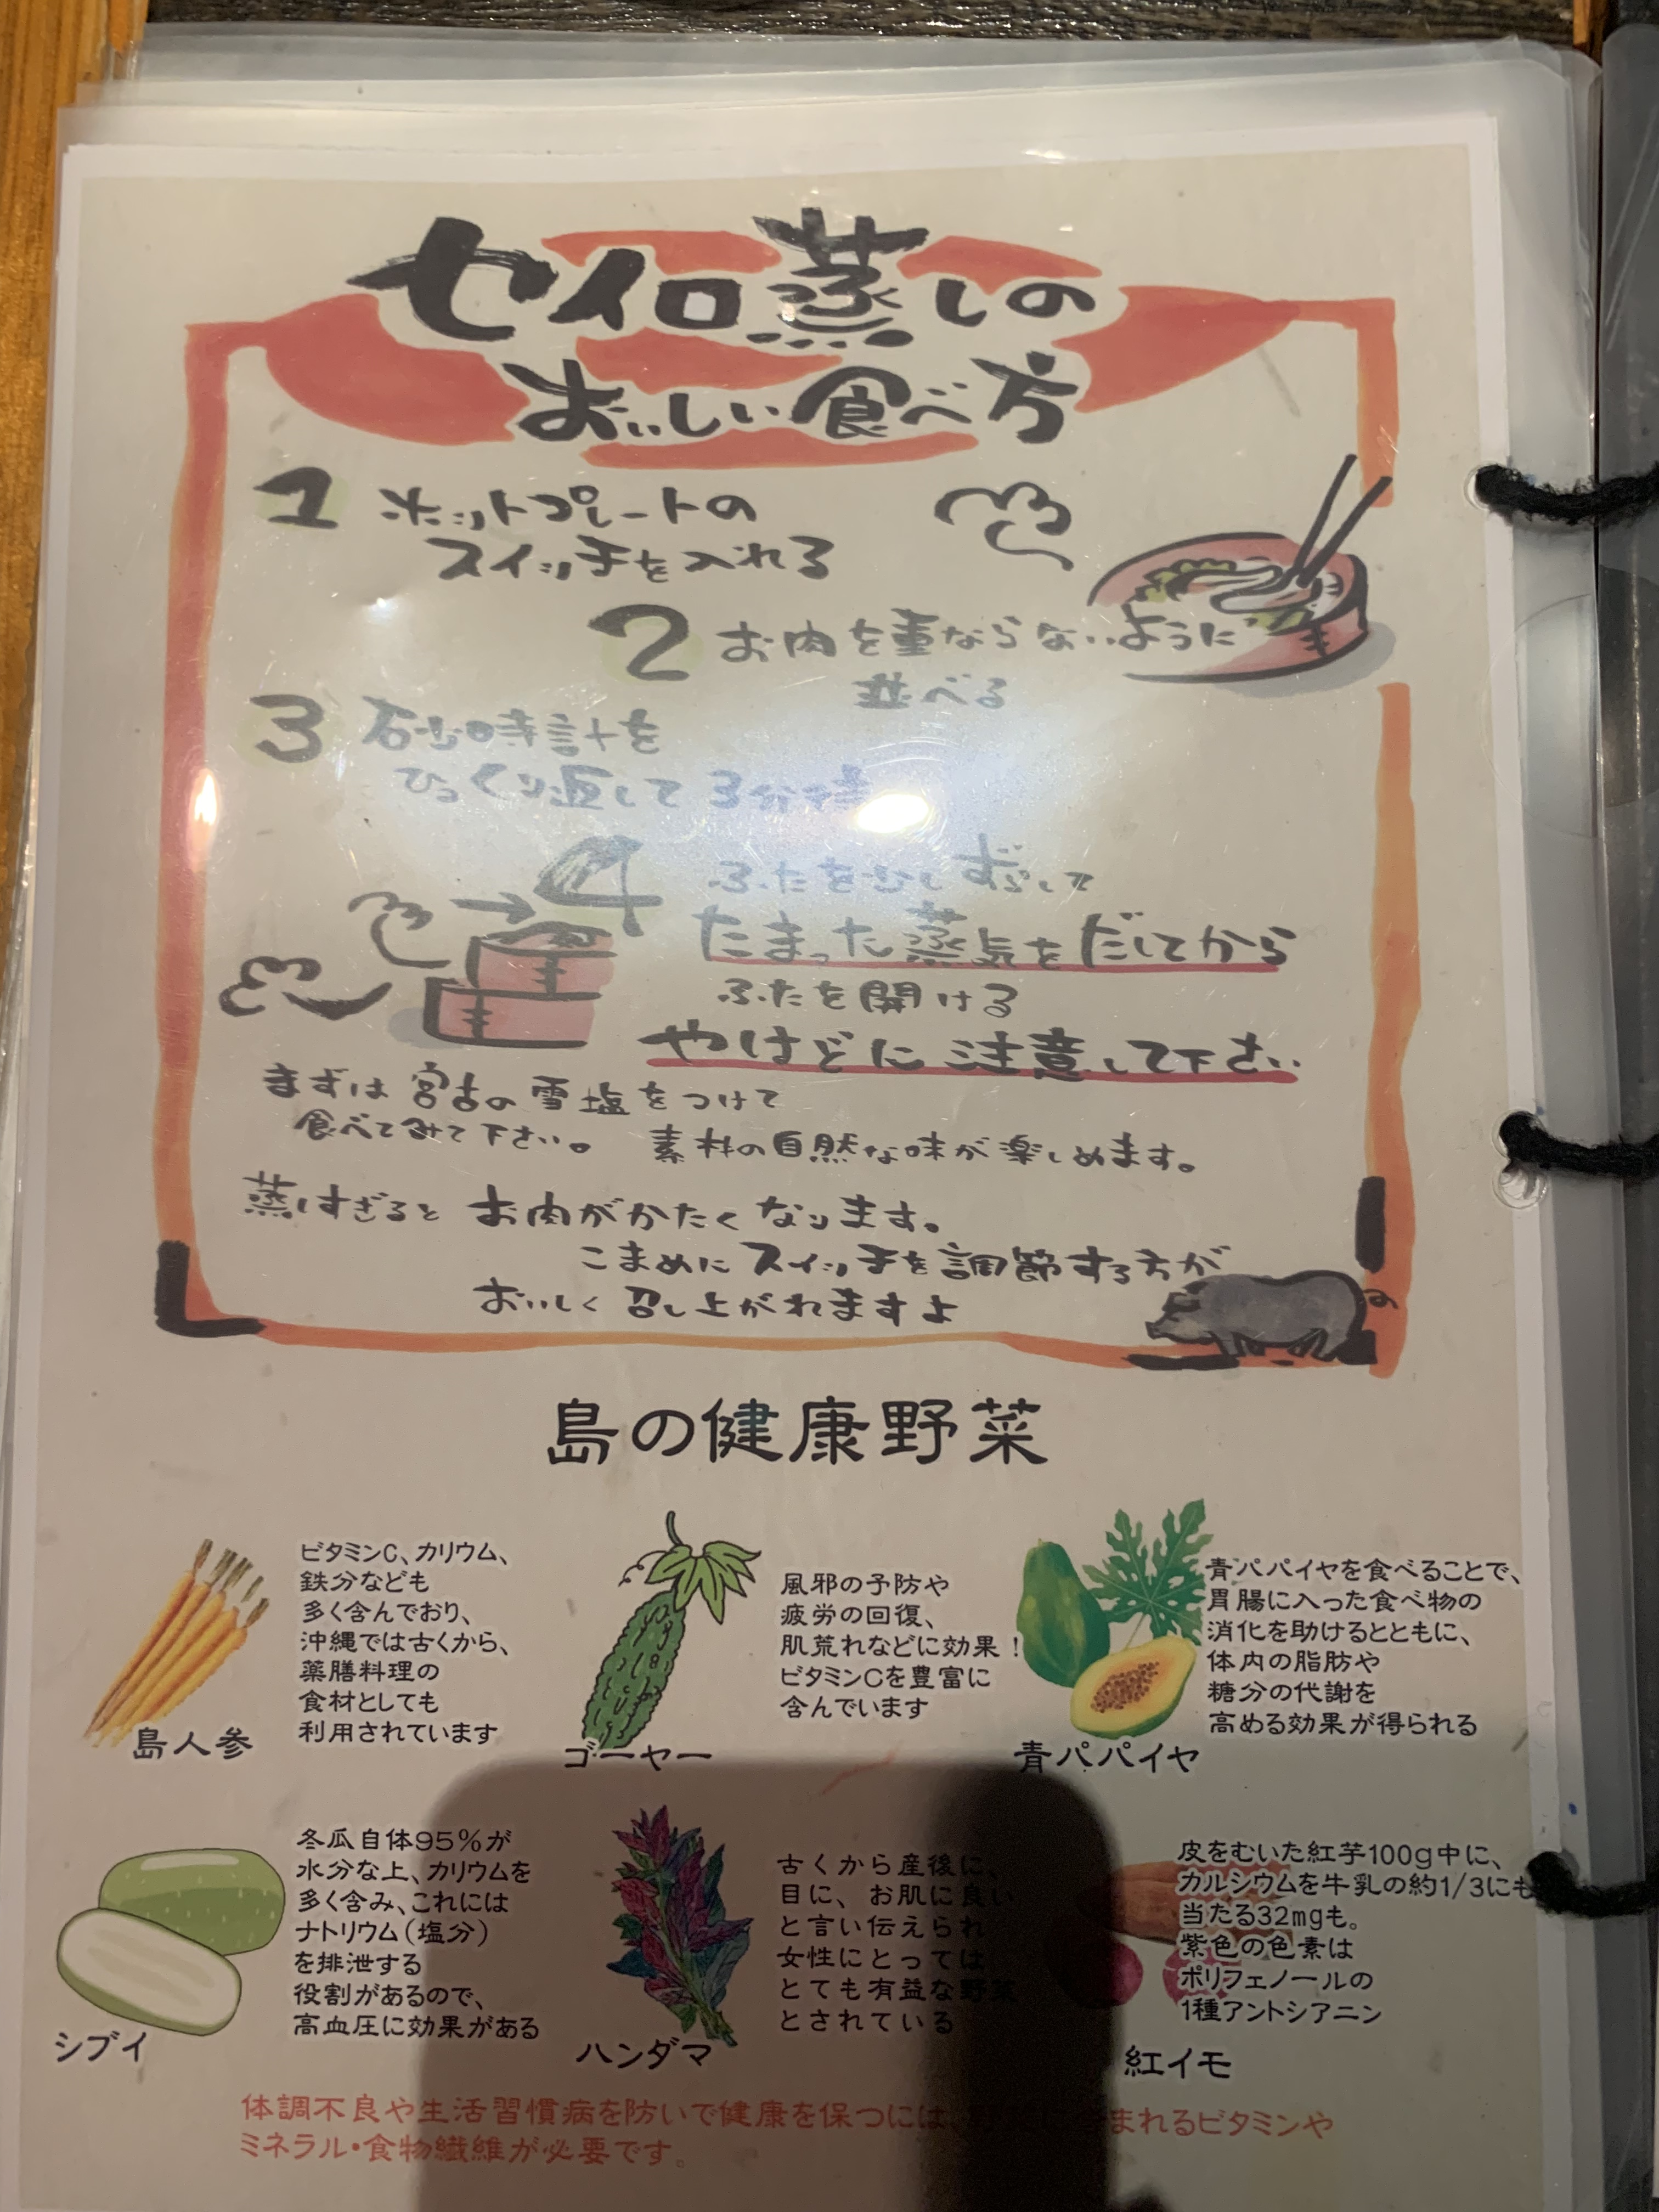 セイロ蒸しの
おいしい食べ方
1 ホットプレートの
スイッチを入れる
2 お肉を重ならないように
並べる
3 砂時計を
ひっくり返して3分待
4 ふたを少しずらして
たまった蒸気をだしてから
ふたを開ける
やけどに注意して下さい
まずは宮古の雪塩をつけて
食べてみて下さい。 素材の自然な味が楽しめます。
蒸しすぎると お肉がかたくなります。
こまめにスイッチを調節する方が
おいしく召し上がれますよ
島の健康野菜
ビタミンC、カリウム、
鉄分なども
多く含んでおり、
沖縄では古くから、
薬膳料理の
食材としても
利用されています
島人参
風邪の予防や
疲労の回復、
肌荒れなどに効果！
ビタミンCを豊富に
含んでいます
ゴーヤー
青パパイヤを食べることで、
胃腸に入った食べ物の
消化を助けるとともに、
体内の脂肪や
糖分の代謝を
高める効果が得られる
青パパイヤ
冬瓜自体95％が
水分な上、カリウムを
多く含み、これには
ナトリウム（塩分）
を排泄する
役割があるので、
高血圧に効果がある
シブイ
古くから産後に、
目に、お肌に良い
と言い伝えられ
女性にとっては
とても有益な野菜
とされている
ハンダマ
皮をむいた紅芋100g中に、
カルシウムを牛乳の約1/3にも
当たる32mgも。
紫色の色素は
ポリフェノールの
1種アントシアニン
紅イモ
体調不良や生活習慣病を防いで健康を保つには、 まれるビタミンや
ミネラル・食物繊維が必要です。